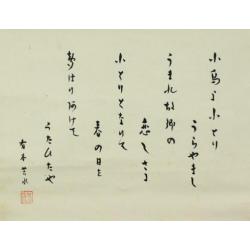 小鳥よ小とり
うらやまし
うまれ故郷の
恋しさに
小とりとなりて
春の日を
はり阿けて
うたひたや
有本芳水